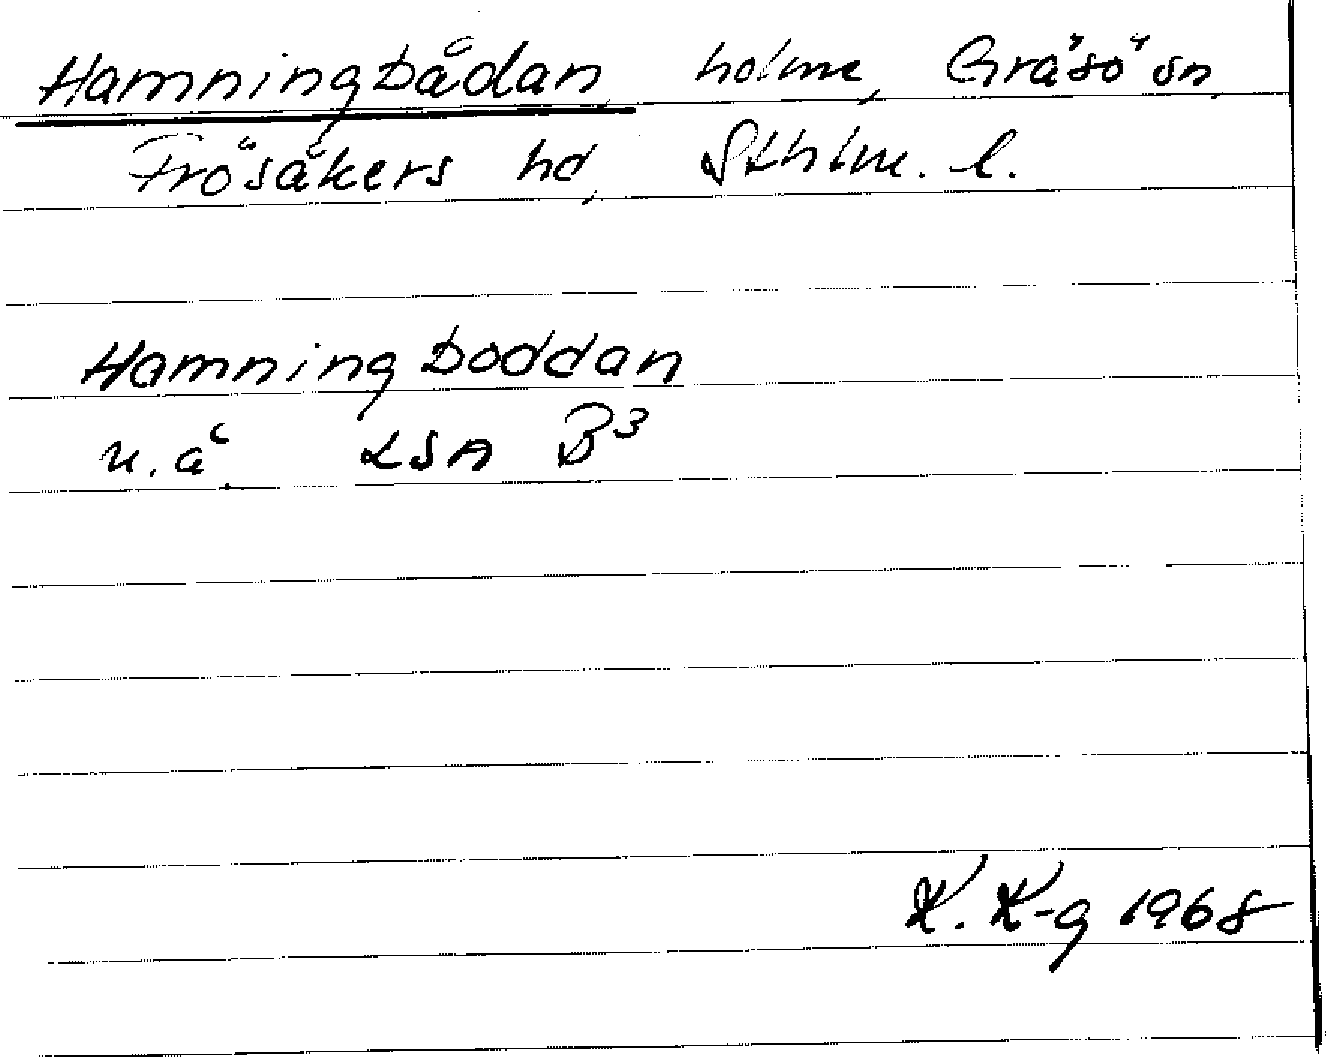 Hamningbådan, holme, Gräsö sn,
Frösåkers hd, Sthlm. l.
Hamningboddan
u.å. LSA B3
K. K-g 1968